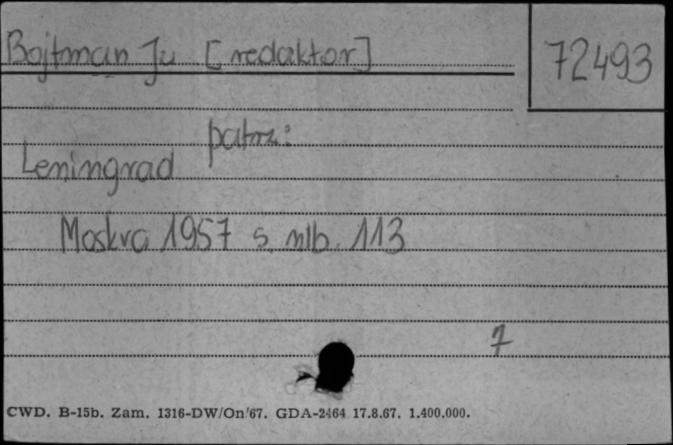 Bojtman Ju [redaktor]
72493
patrz:
Leningrad
Moskva 1957 s. nlb. 113
7
CWD. B-15b. Zam. 1316-DW/On/67. GDA-2464 17.8.67. 1.400.000.